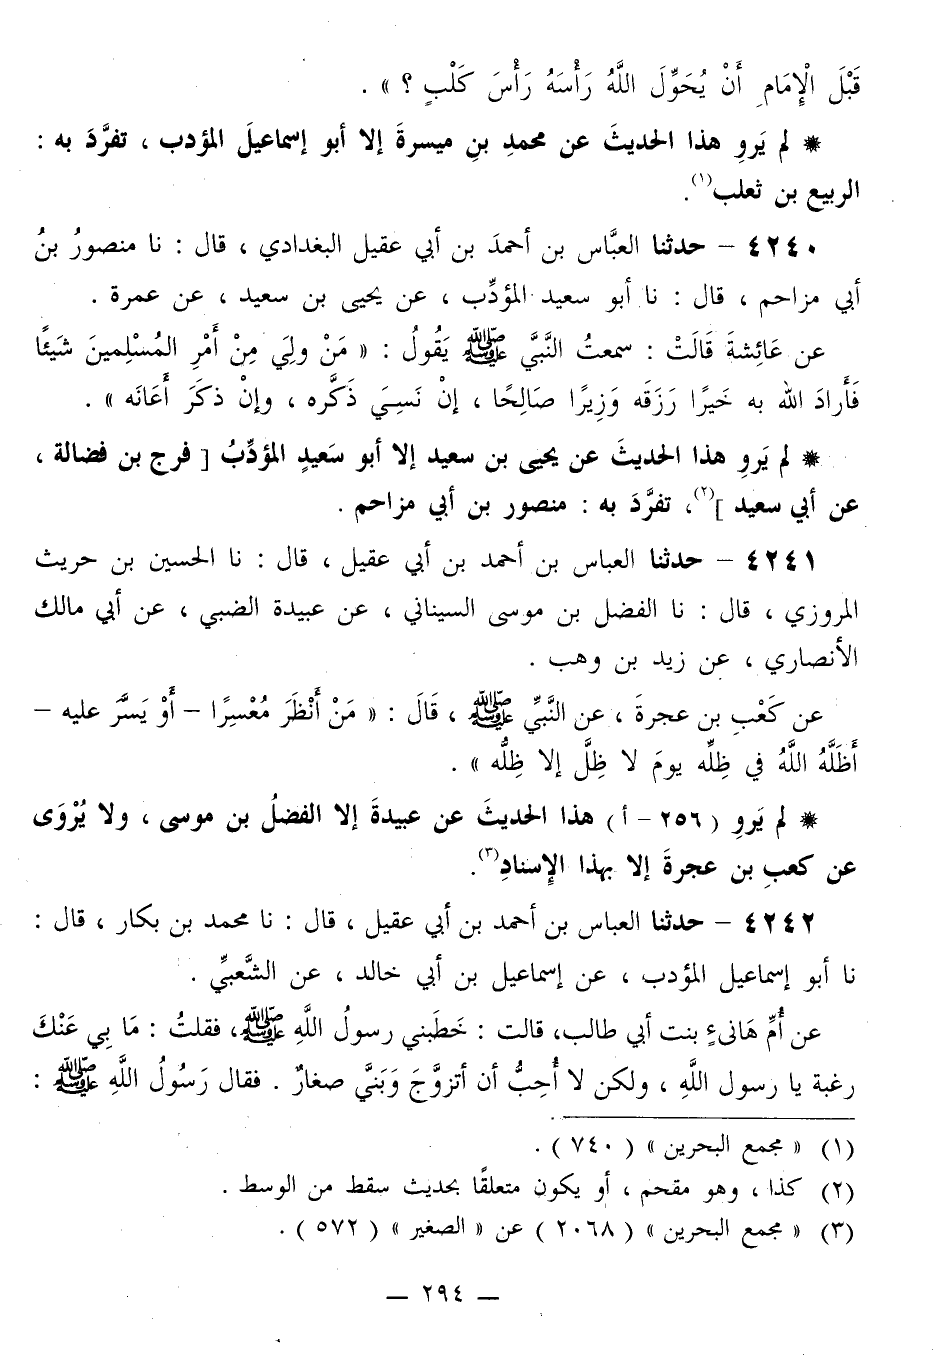 قَبْلَ الْإِمَامِ أَنْ يُحَوِّلَ اللَّهُ رَأْسَهُ رَأْسَ كَلْبٍ ؟ » .
* لم يَروِ هذا الحديثَ عن محمدِ بنِ ميسرةَ إلا أبو إسماعيلَ المؤدب ، تفرَّدَ به :
الربيع بن ثعلب(١).
٤٢٤٠ – حدثنا العبَّاس بن أحمدَ بن أبي عقيل البغدادي ، قال : نا منصورُ بنُ
أبي مزاحم ، قال : نا أبو سعيد المؤدِّب ، عن يحيى بن سعيد ، عن عمرة .
عن عَائِشةَ قَالَتْ : سمعتُ النَّبيَّ ﷺ يَقُولُ : « مَنْ ولِيَ مِنْ أَمْرِ المُسْلِمينَ شَيئًا
فَأَرادَ الله به خَيرًا رَزَقَه وَزِيرًا صَالِحًا ، إنْ نَسِيَ ذَكَّره ، وإنْ ذكَرَ أَعَانَه » .
* لم يَروِ هذا الحديثَ عن يحيى بن سعيد إلا أبو سَعيدٍ المؤدِّبُ [ فرج بن فضالة ،
عن أبي سعيد ](٢)، تفرَّدَ به : منصور بن أبي مزاحم .
٤٢٤١ – حدثنا العباس بن أحمد بن أبي عقيل ، قال : نا الحسين بن حريث
المروزي ، قال : نا الفضل بن موسى السيناني ، عن عبيدة الضبي ، عن أبي مالك
الأنصاري ، عن زيد بن وهب .
عن كَعْبِ بن عجرةَ ، عن النَّبيِّ ﷺ ، قَالَ : « مَنْ أَنْظَرَ مُعْسِرًا – أَوْ يَسَّرَ عليه –
أَظَلَّهُ اللَّهُ في ظِلِّه يومَ لا ظِلَّ إلا ظِلُّه » .
* لم يَروِ ( ٢٥٦ – أ ) هذا الحديثَ عن عبيدةَ إلا الفضلُ بن موسى ، ولا يُرْوَى
عن كعبِ بن عجرةَ إلا بهذا الإسنادِ(٣).
٤٢٤٢ – حدثنا العباس بن أحمد بن أبي عقيل ، قال : نا محمد بن بكار ، قال :
نا أبو إسماعيل المؤدب ، عن إسماعيل بن أبي خالد ، عن الشَّعبيِّ .
عن أُمِّ هَانىءٍ بنت أبي طالب، قالت : خَطَبني رسولُ اللَّهِ ﷺ، فقلتُ : مَا بِي عَنْكَ
رغبة يا رسول اللَّهِ ، ولكن لا أُحِبُّ أن أتزوَّجَ وَبَنيَّ صغارٌ . فقال رَسُولُ اللَّهِ ﷺ :
(١) « مجمع البحرين » ( ٧٤٠ ) .
(٢) كذا ، وهو مقحم ، أو يكون متعلقًا بحديث سقط من الوسط .
(٣) « مجمع البحرين » ( ٢٠٦٨ ) عن « الصغير » ( ٥٧٢ ) .
— ٢٩٤ —